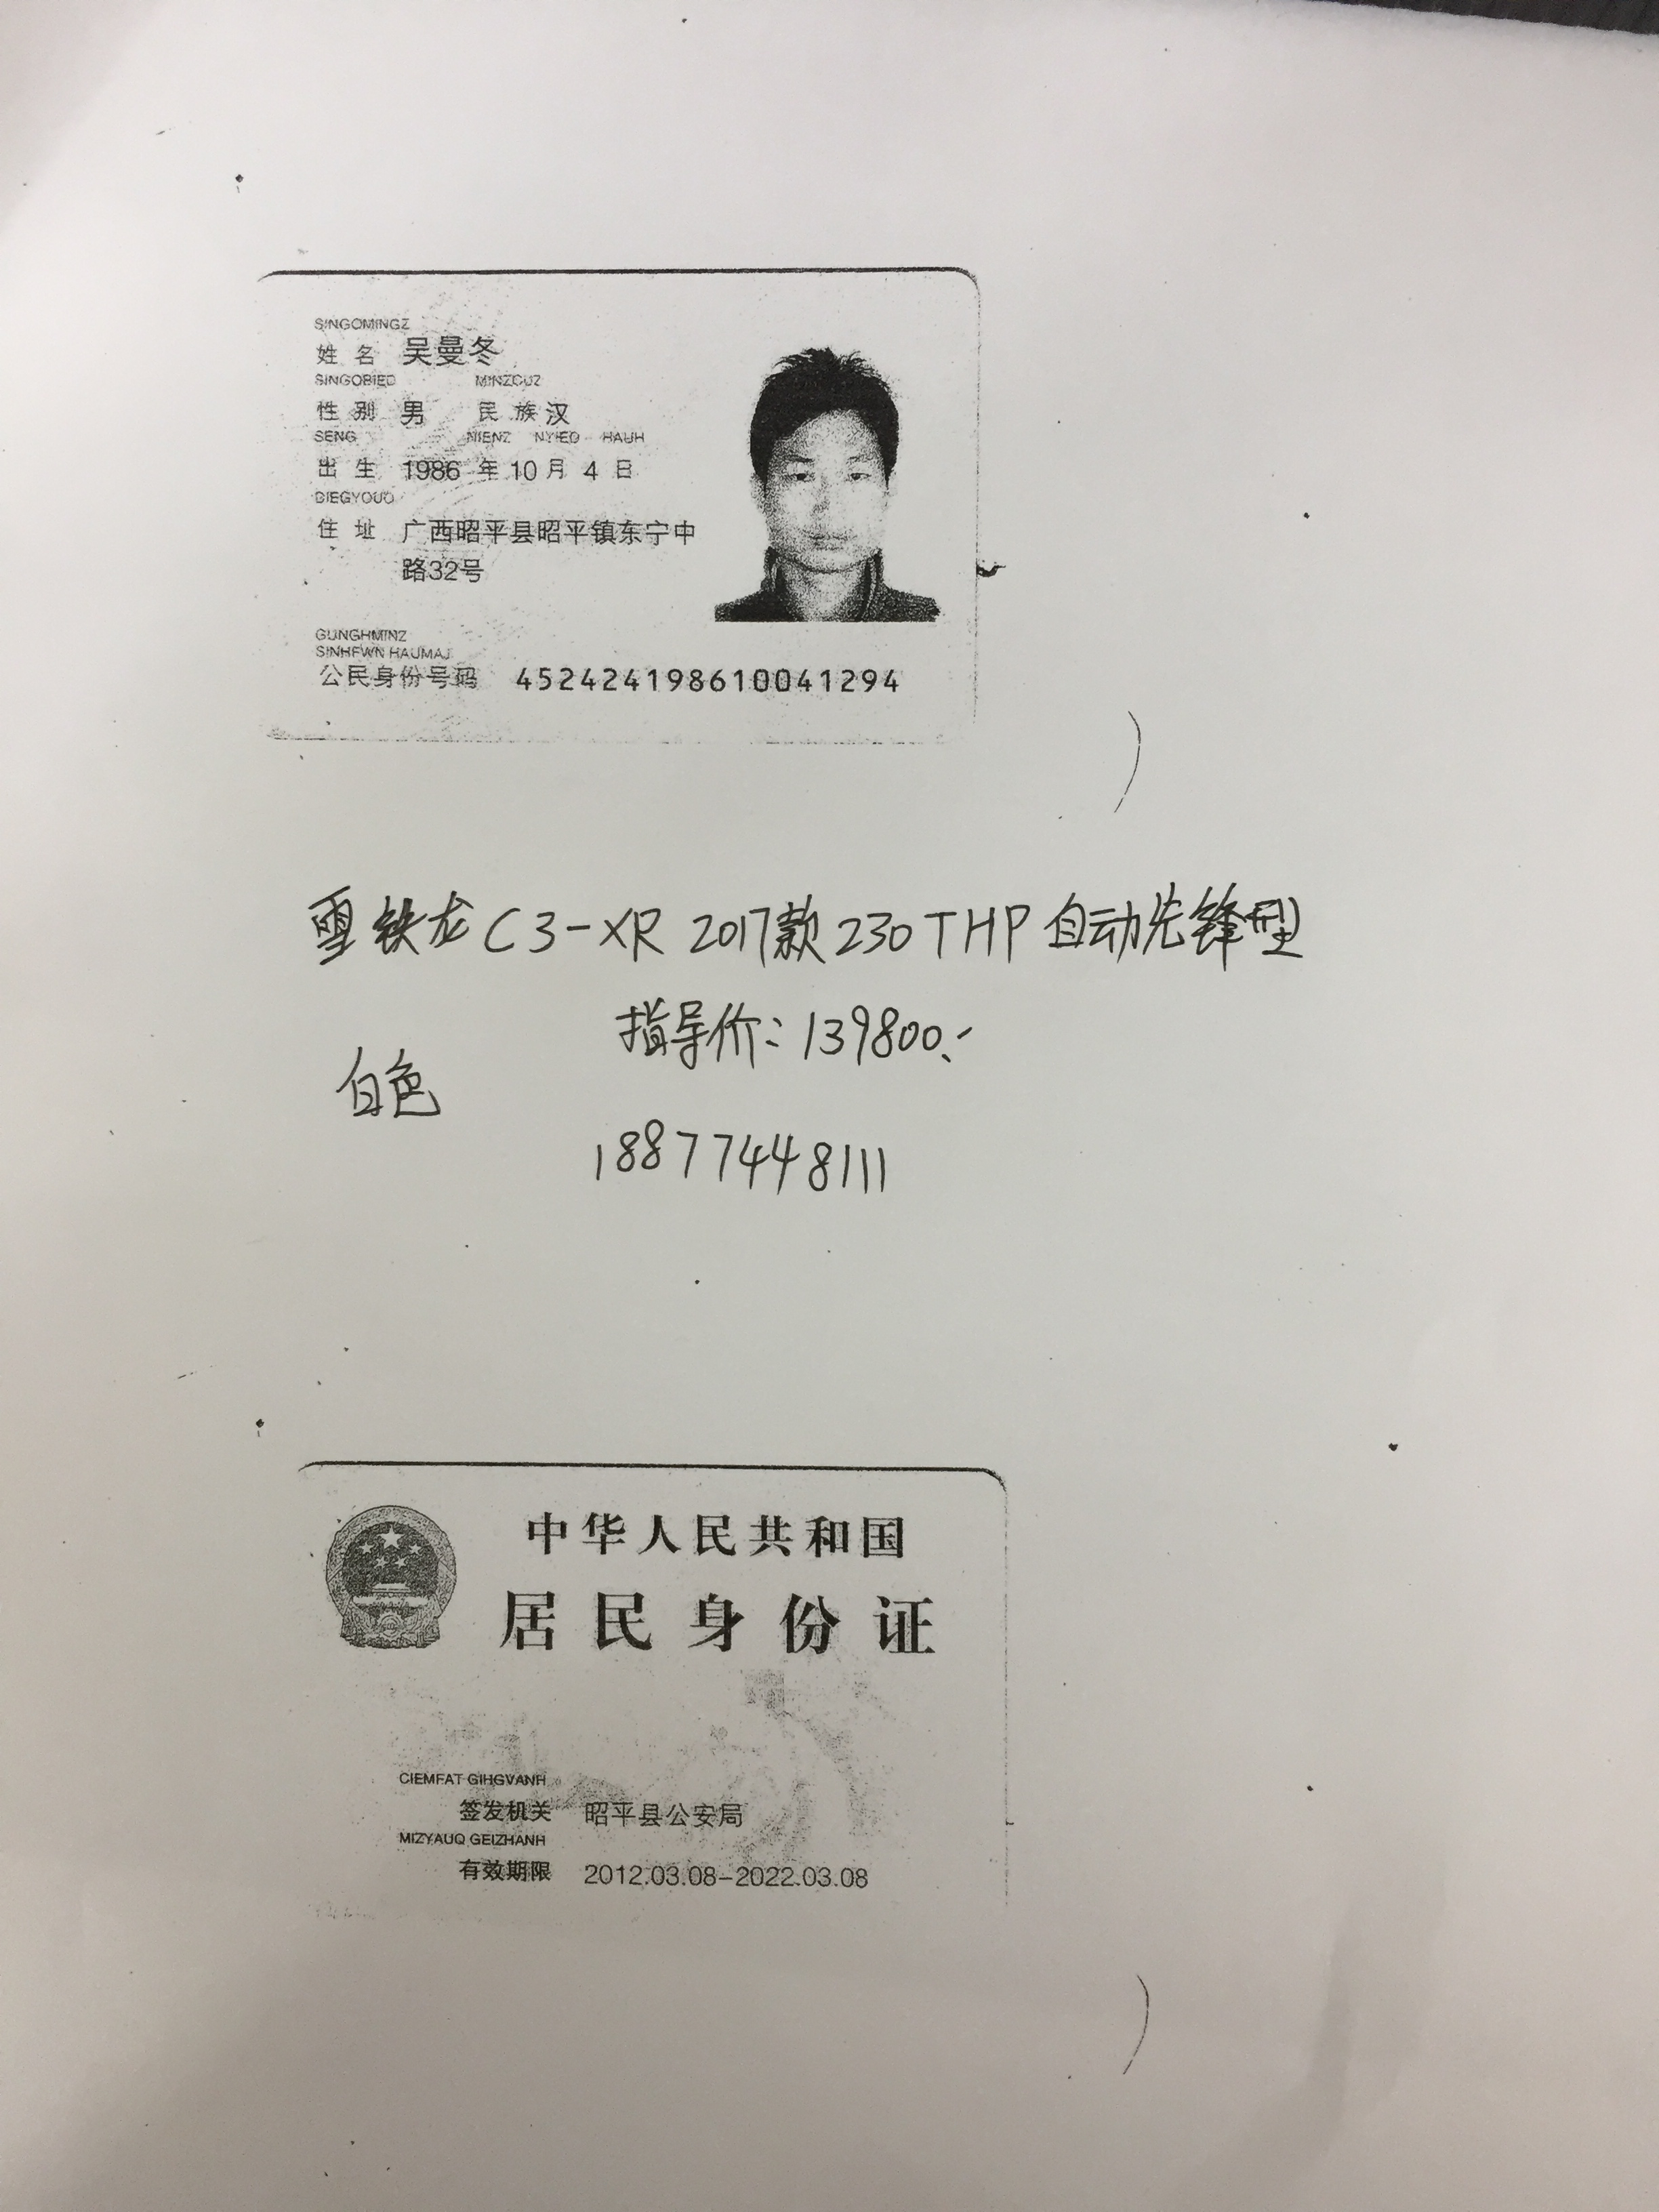 SINGOMINGZ
姓名 吴曼冬
SINGQBIED MINZCUZ
性别 男 民族 汉
SENG NIENZ NYIED HAUH
出生 1986 年 10 月 4 日
DIEGYOUQ
住址 广西昭平县昭平镇东宁中
路32号
GUNGHMINZ
SINHFWN HAUMAJ
公民身份号码 452424198610041294
雪铁龙C3-XR 2017款230THP自动先锋型
指导价:139800.-
白色
18877448111
中华人民共和国
居民身份证
CIEMFAT GIHGVANH
签发机关 昭平县公安局
MIZYAUQ GEIZHANH
有效期限 2012.03.08-2022.03.08